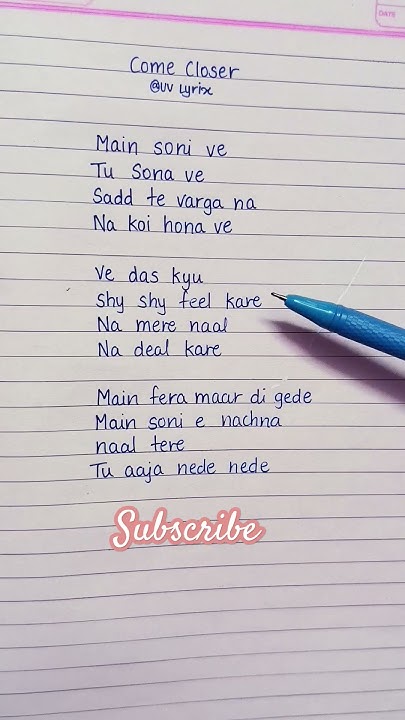 DATE
Come Closer
@UV Lyrix
Main soni ve
Tu Sona ve
Sadd te varga na
Na koi hona ve
Ve das kyu
Shy shy feel kare
Na mere naal
Na deal kare
Main fera maar di gede
Main soni e nachna
naal tere
Tu aaja nede nede
Subscribe